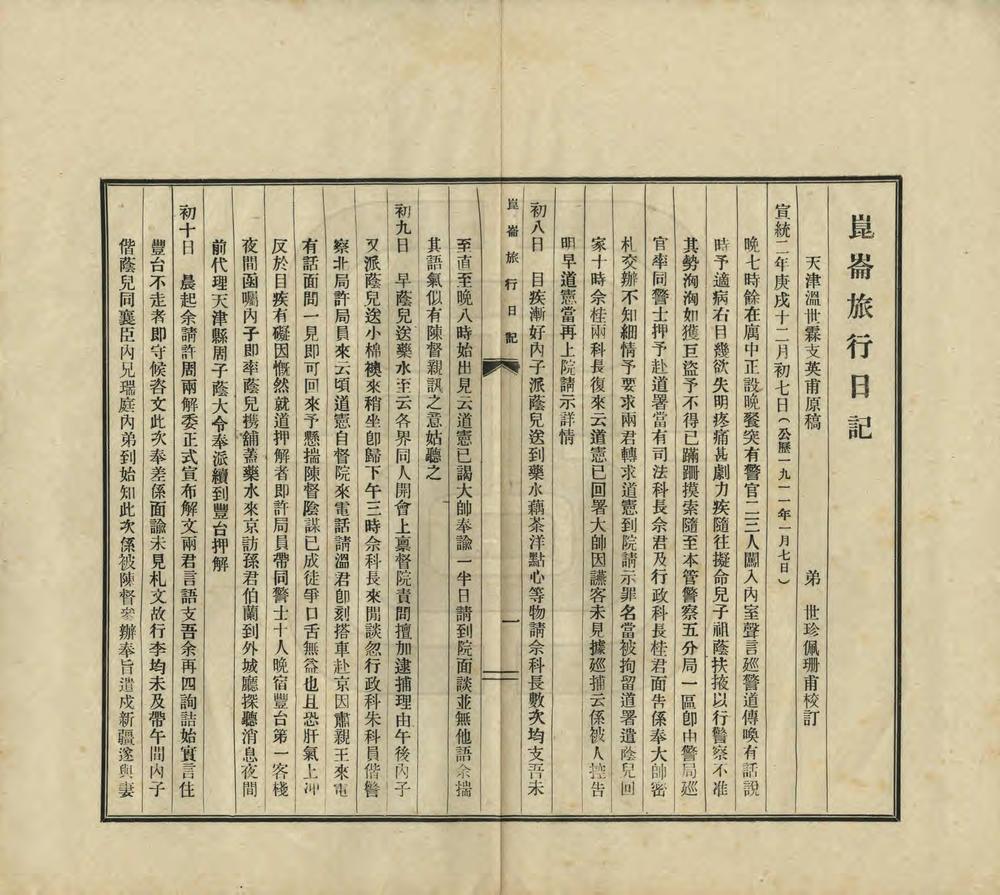 崑崙旅行日記
天津溫世霖支英甫原稿　弟　世珍佩珊甫校訂
宣統二年庚戌十二月初七日（公歷一九一一年一月七日）
晚七時餘在寓中正設晚餐突有警官二三人闖入內室聲言廵警道傳喚有話說
時予適病右目幾欲失明疼痛甚劇力疾隨往擬命兒子祖蔭扶掖以行警察不准
其勢洶洶如獲巨盜予不得已蹣跚摸索隨至本管警察五分局一區卽由警局廵
官率同警士押予赴道署當有司法科長余君及行政科長桂君面告係奉大帥密
札交辦不知細情予要求兩君轉求道憲到院請示罪名當被拘留道署遣蔭兒回
家十時余桂兩科長復來云道憲已回署大帥因讌客未見據廵捕云係被人控告
明早道憲當再上院請示詳情
初八日　目疾漸好內子派蔭兒送到藥水藕茶洋點心等物請余科長數次均支吾未
崑崙旅行日記　一
至直至晚八時始出見云道憲已謁大帥奉諭一半日請到院面談並無他語余揣
其語氣似有陳督親訊之意姑聽之
初九日　早蔭兒送藥水至云各界同人開會上稟督院責問擅加逮捕理由午後內子
又派蔭兒送小棉襖來稍坐卽歸下午三時余科長來閒談忽行政科朱科員偕警
察北局許局員來云頃道憲自督院來電話請溫君卽刻搭車赴京因肅親王來電
有話面問一見即可回來予懸揣陳督陰謀已成徒爭口舌無益也且恐肝氣上冲
反於目疾有礙因慨然就道押解者即許局員帶同警士十人晚宿豐台第一客棧
夜間函囑內子即率蔭兒携舖蓋藥水來京訪孫君伯蘭到外城廳探聽消息夜間
前代理天津縣周子蔭大令奉派續到豐台押解
初十日　晨起余請許周兩解委正式宣布解文兩君言語支吾余再四詢詰始實言住
豐台不走者即守候咨文此次奉差係面諭未見札文故行李均未及帶午間內子
偕蔭兒同襄臣內兄瑞庭內弟到始知此次係被陳督參辦奉旨遣戍新疆遂與妻